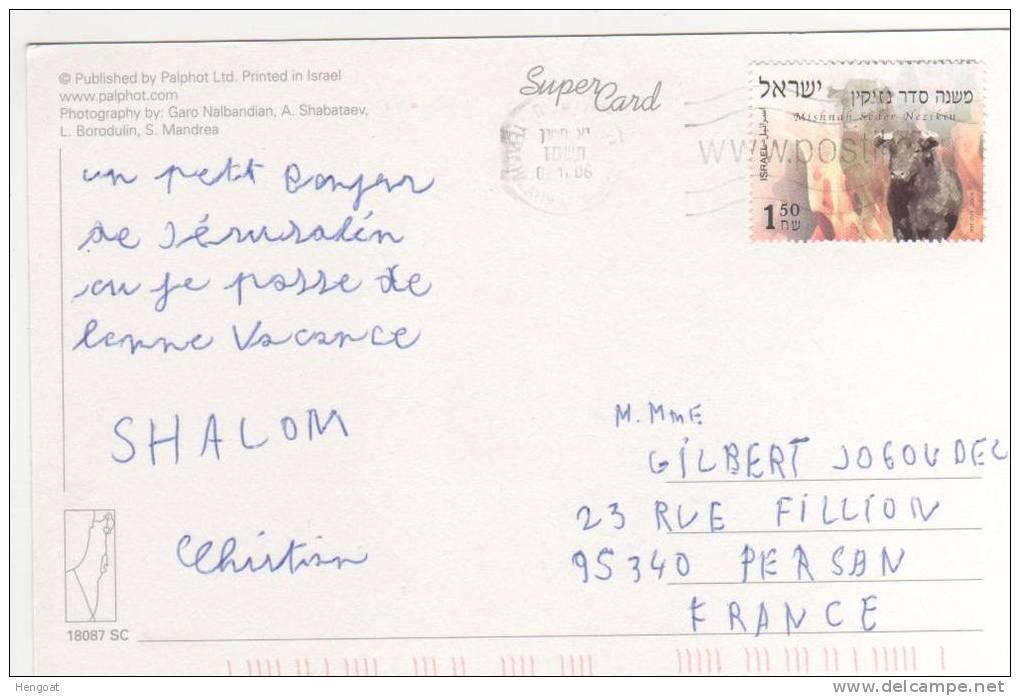 © Published by Palphot Ltd. Printed in Israel
www.palphot.com
Photography by: Garo Nalbandian, A. Shabataev,
L. Borodulin, S. Mandrea
Super Card
ישראל
משנה סדר נזיקין
Mishnah Seder Nezikin
ISRAEL
اسرائيل
1 50
שח
www.posti
un petit Bonjour
de Jérusalèn
ou je passe de
bonne Vacance
SHALOM
Christian
M. Mme
GILBERT JOGOUDEL
23 RUE FILLION
95340 PERSAN
FRANCE
18087 SC
Hengoat
www.delcampe.net